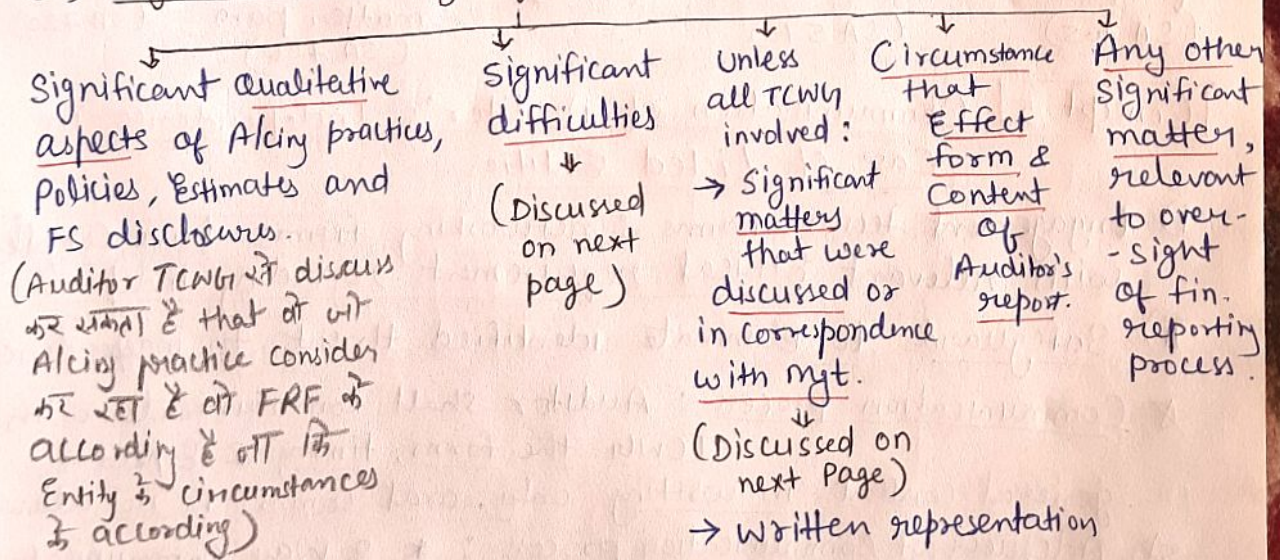 Significant Qualitative
aspects of A/cing practices,
Policies, Estimates and
FS disclosures.
(Auditor TCWG से discuss
कर सकता है that वो जो
A/cing practice consider
कर रहा है वो FRF के
according है ना कि
Entity के circumstances
के according)
Significant
difficulties
(Discussed
on next
page)
Unless
all TCWG
involved:
→ Significant
matters
that were
discussed or
in correspondence
with mgt.
(Discussed on
next Page)
→ written representation
Circumstance
that
Effect
form &
Content
of
Auditor's
report.
Any other
Significant
matter,
relevant
to over-
-sight
of fin.
reporting
process.